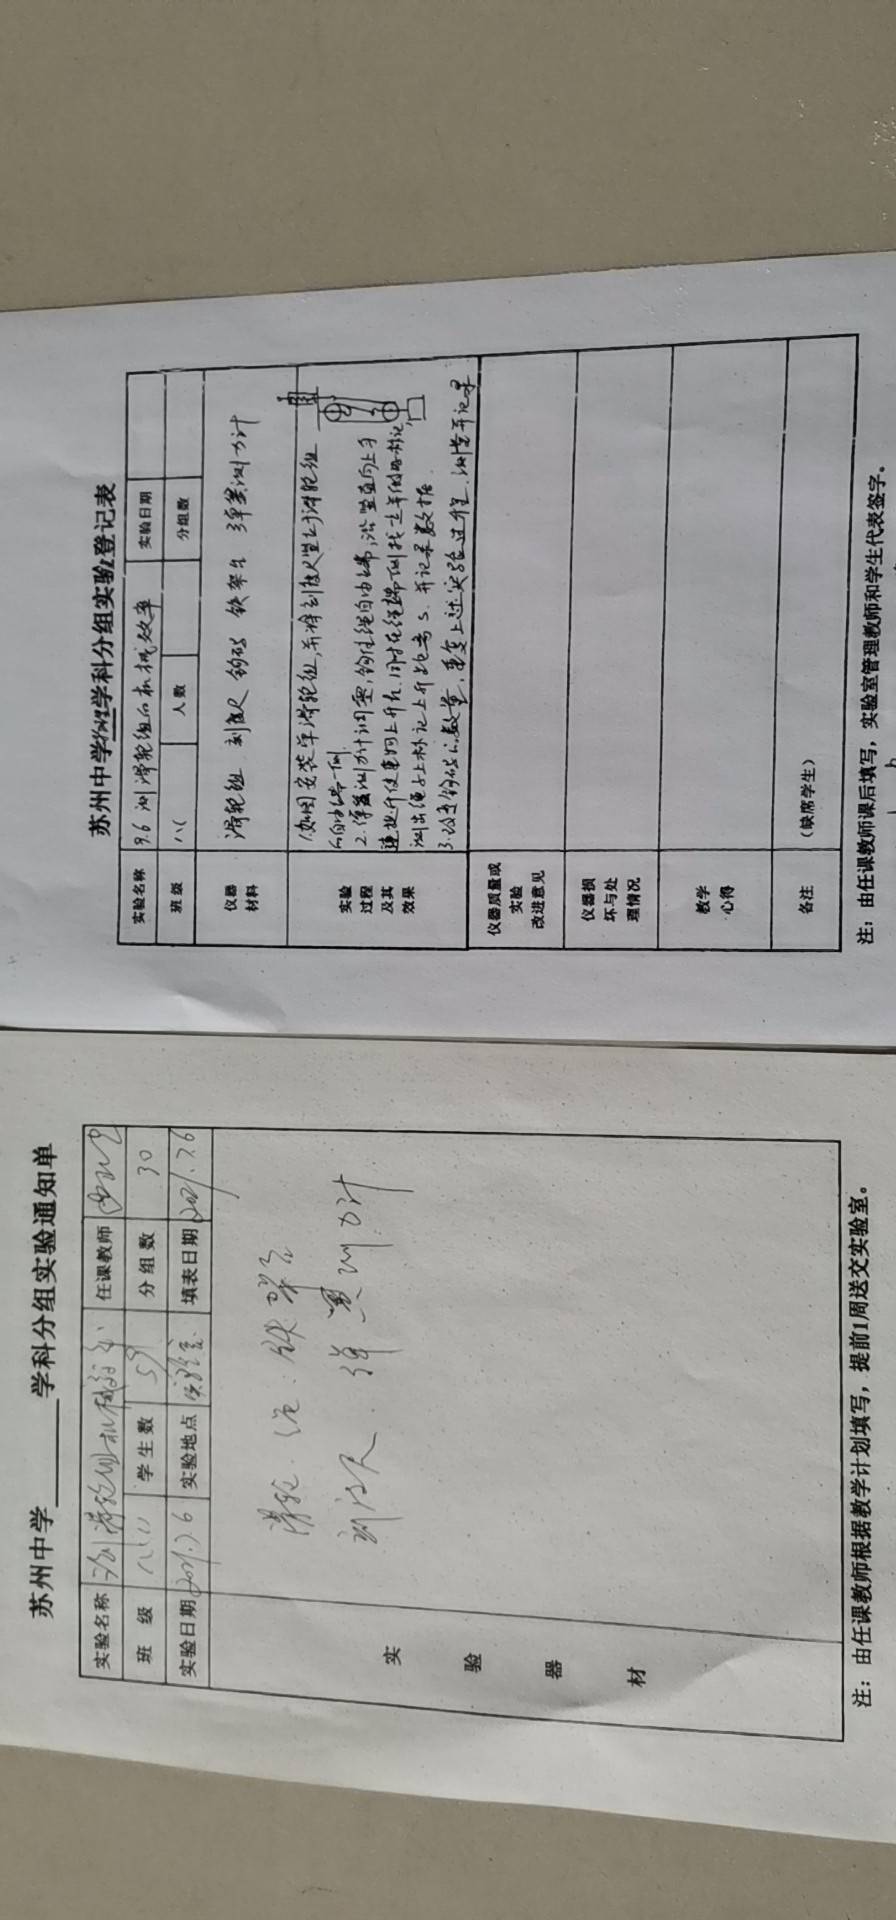 苏州中学 学科分组实验通知单
实验名称 测滑轮组机械效率 任课教师
班 级 学生数 59 分组数 30
实验日期 实验地点 实验室 填表日期
实验器材
滑轮、绳、铁架台
刻度尺、弹簧测力计
注:由任课教师根据教学计划填写,提前1周送交实验室。
苏州中学物理学科分组实验登记表
实验名称 9.6 测滑轮组的机械效率 实验日期
班 级 人 数 分组数
仪器材料
滑轮组 刻度尺 钩码 铁架台 弹簧测力计
实验过程及其效果
1.如图安装单滑轮组,并将刻度尺竖于滑轮组
的自由端一侧.
2.弹簧测力计调零,钩住绳自由端,沿竖直向上匀
速提升使重物上升h,同时在绳端一侧找
测出绳子上标记上升距离s.并记录数据.
3.改变钩码的数量,重复上述实验过程.测量并记录
仪器质量或实验改进意见
仪器损坏与处理情况
教学心得
备注 (缺席学生)
注:由任课教师课后填写,实验室管理教师和学生代表签字。